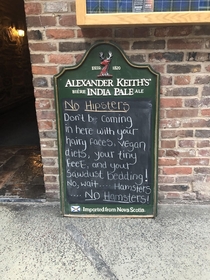 ALEXANDER KEITH'S
ESTD 1820
BIÈRE INDIA PALE ALE
No Hipsters
Don't be coming
in here with your
hairy faces, vegan
diets, your tiny
feet, and your
Sawdust bedding!
No, wait.... Hamsters
.... No Hamsters!
Imported from Nova Scotia